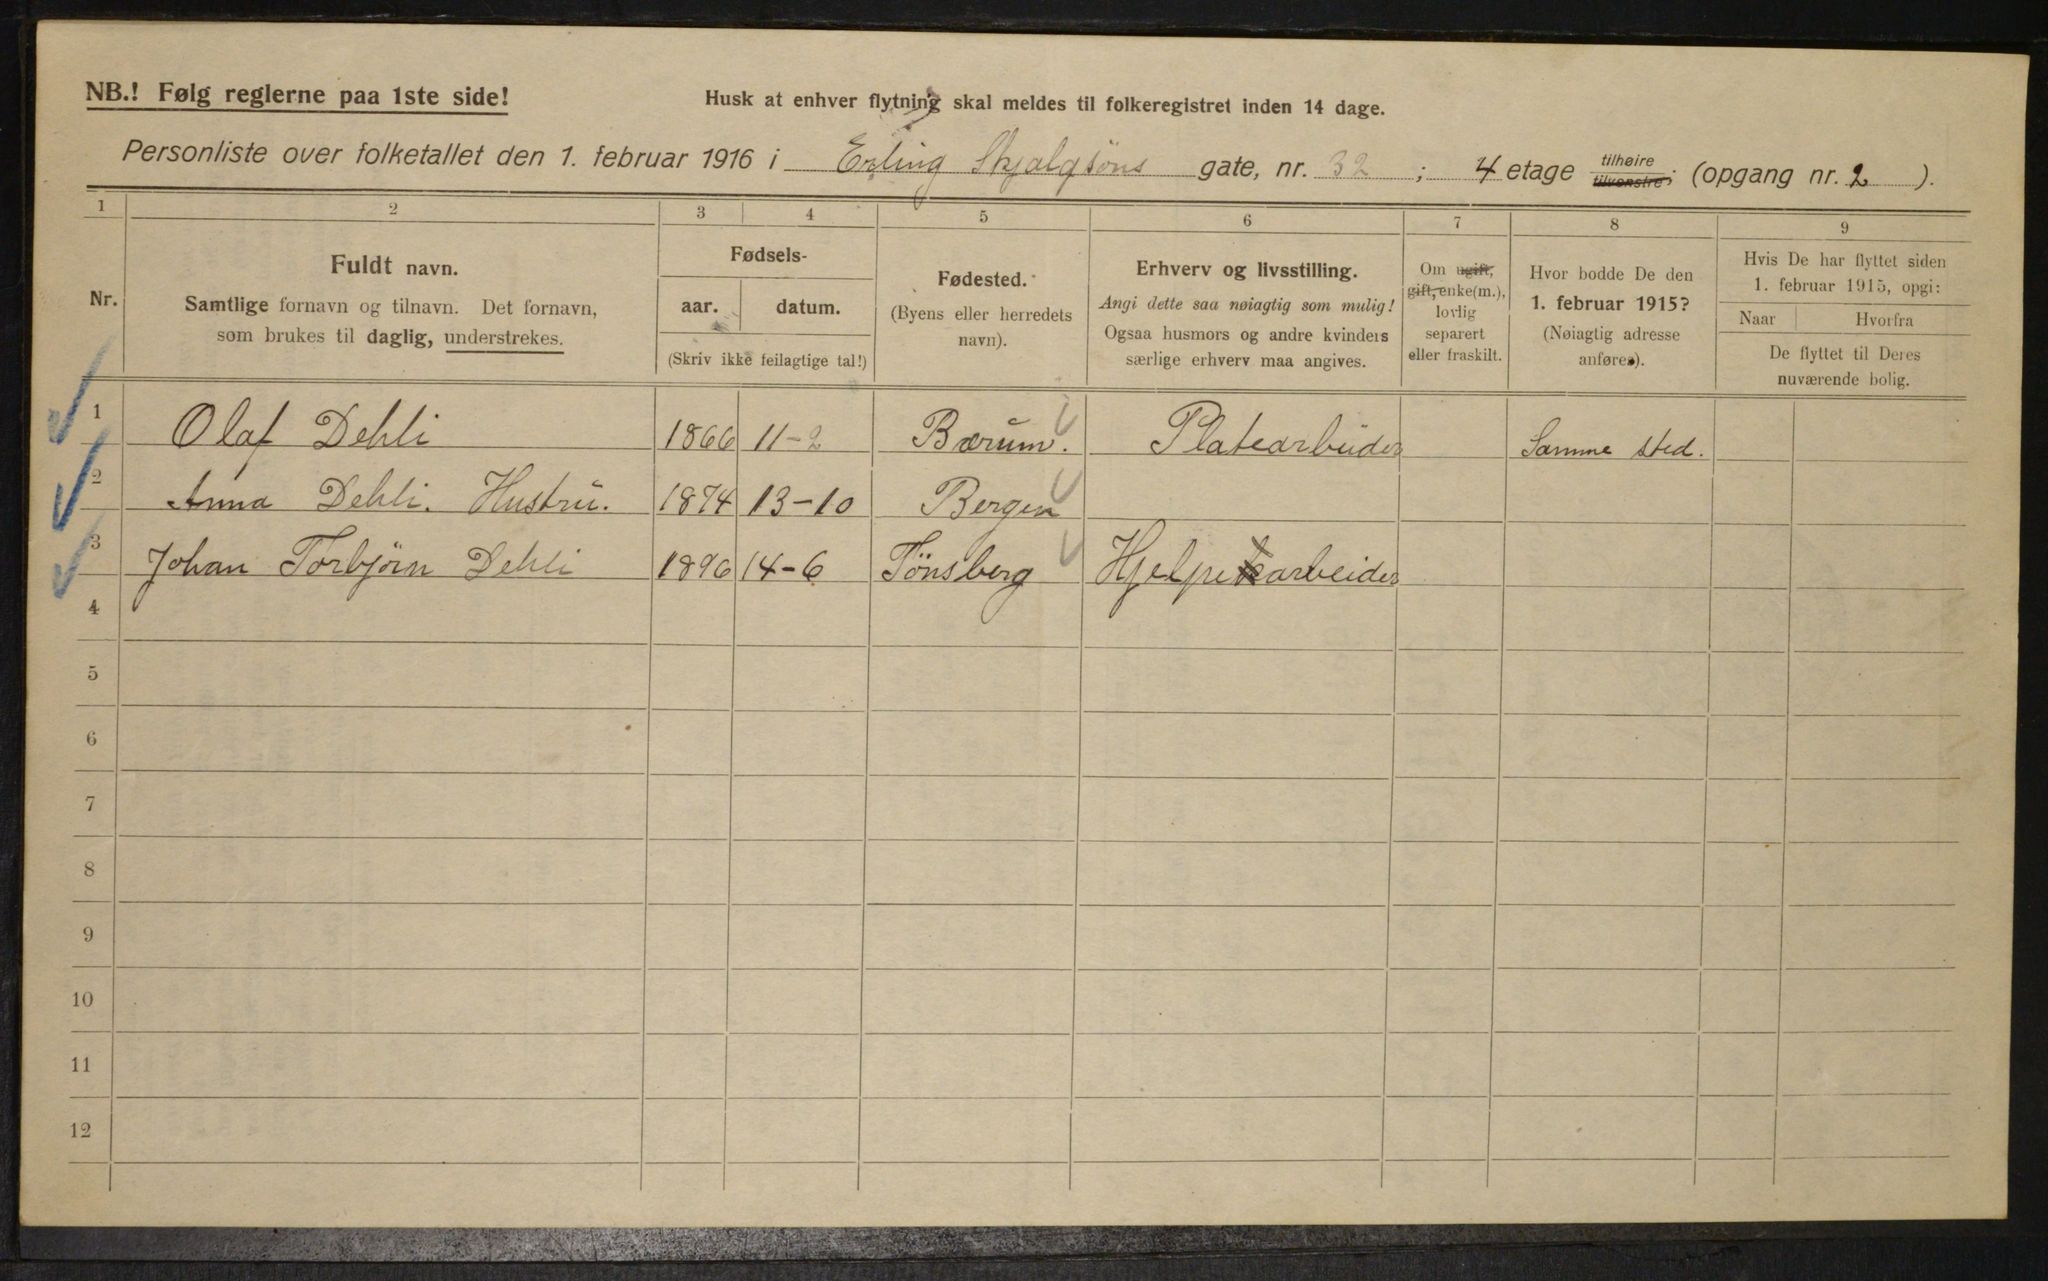 NB.! Følg reglerne paa 1ste side!
Husk at enhver flytning skal meldes til folkeregistret inden 14 dage.
Personliste over folketallet den 1. februar 1916 i Erling Skjalgsöns gate, nr. 32 ; 4 etage tilhøire tilvenstre; (opgang nr. 2 ).
1 2 3 4 5 6 7 8 9
Nr.
Fuldt navn.
Samtlige fornavn og tilnavn. Det fornavn,
som brukes til daglig, understrekes.
Fødsels-
aar. datum.
(Skriv ikke feilagtige tal!)
Fødested.
(Byens eller herredets
navn).
Erhverv og livsstilling.
Angi dette saa nøiagtig som mulig!
Ogsaa husmors og andre kvinders
særlige erhverv maa angives.
Om ugift,
gift, enke(m.),
lovlig
separert
eller fraskilt.
Hvor bodde De den
1. februar 1915?
(Nøiagtig adresse
anføres).
Hvis De har flyttet siden
1. februar 1915, opgi:
Naar Hvorfra
De flyttet til Deres
nuværende bolig.
1 Olaf Dehli 1866 11-2 Bærum. Platearbeider Samme sted.
2 Anna Dehli. Hustru. 1874 13-10 Bergen
3 Johan Torbjörn Dehli 1896 14-6 Tönsberg Hjelpearbeider
4
5
6
7
8
9
10
11
12